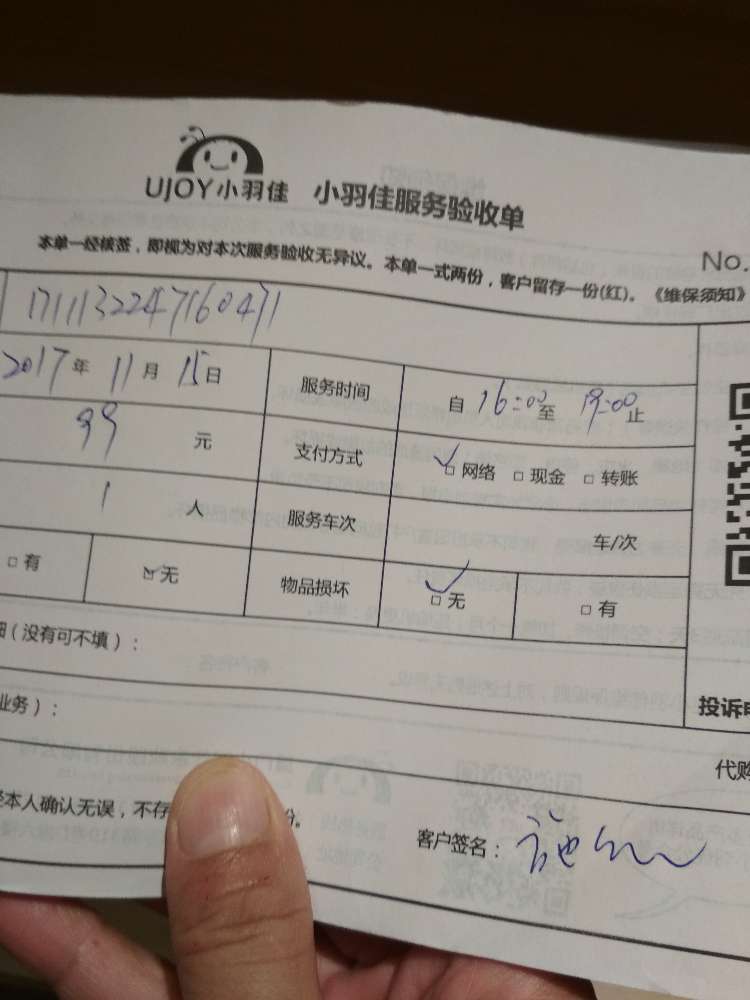 UJOY小羽佳 小羽佳服务验收单
No.
本单一经核签，即视为对本次服务验收无异议。本单一式两份，客户留存一份(红)。《维保须知》
1711132247160471
2017年 11月 15日 服务时间 自 16:00 至 19:00 止
99 元 支付方式 □网络 □现金 □转账
1 人 服务车次 车/次
□有 □无 物品损坏 □无 □有
(没有可不填)：
业务)：
投诉
代购
本人确认无误，不存
客户签名：施